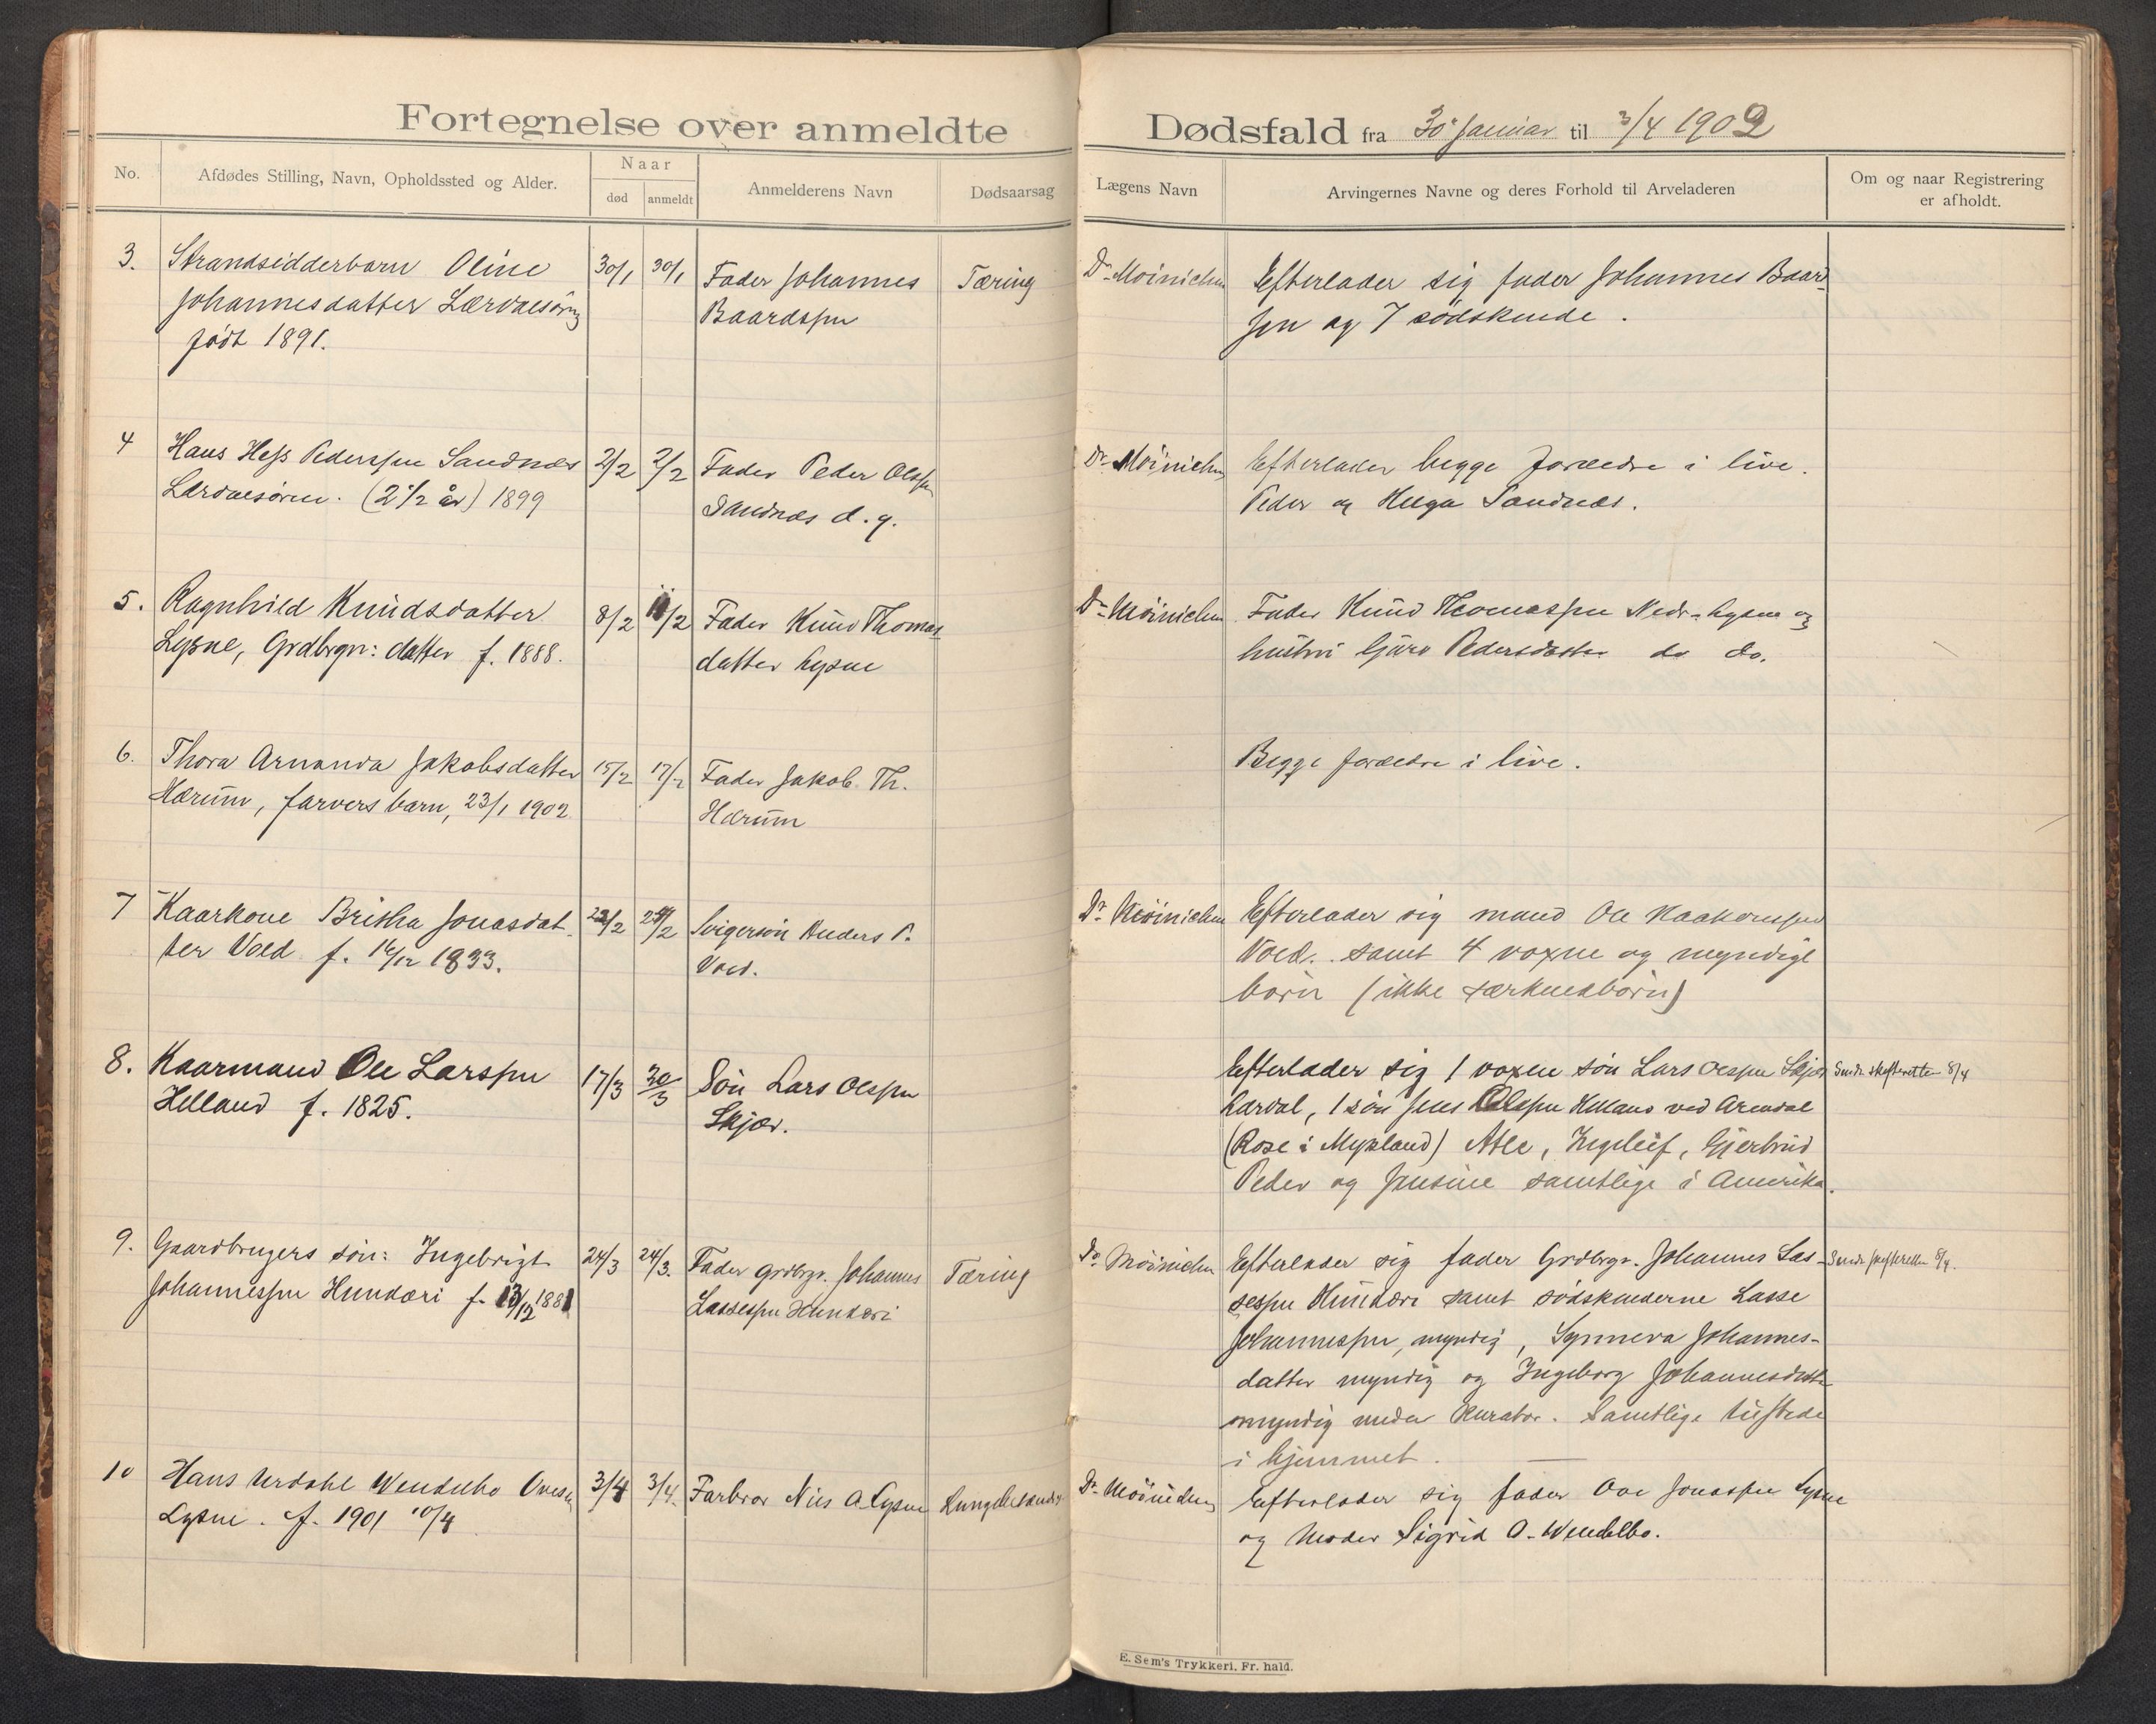 Fortegnelse over anmeldte
Dødsfald fra 30 Januar til 3/4 1902
No.
Afdødes Stilling, Navn, Opholdssted og Alder.
Naar
død
anmeldt
Anmelderens Navn
Dødsaarsag
Lægens Navn
Arvingernes Navne og deres Forhold til Arveladeren
Om og naar Registrering
er afholdt.
3.
Strandsidderbarn Oline
Johannesdatter Lærdalsøren
født 1891.
30/1
30/1
Fader Johannes
Baardsen
Tæring
Dr Møinichen
Efterlader sig fader Johannes Baard-
sen og 7 sødskende.
4
Hans Hess Pedersen Sandnæs
Lærdalsøren. (2 1/2 år) 1899
2/2
2/2
Fader Peder Olsen
Sandnæs d. g.
Dr. Møinichen
Efterlader begge forældre i live.
Peder og Helga Sandnæs.
5.
Ragnhild Knudsdatter
Lysne, Grdbrgr: datter f. 1888.
8/2
Fader Knud Thomas
datter Lysne
Dr. Møinichen
Fader Knud Thomassen Nedr. Lysne og
hustru Guro Pedersdatter do do.
6.
Thora Arnanda Jakobsdatter
Hærum, farvers barn, 23/1 1902
15/2
17/2
Fader Jakob Th.
Hærum
Begge forældre i live.
7
Kaarkone Britha Jonasdat-
ter Vold f. 16/12 1833.
Svigersøn Anders P.
Vold.
Dr. Møinichen
Efterlader sig mand Ole Haakonsen
Vold. samt 4 voxne og myndige
børn (ikke særkuldsbørn)
8.
Kaarmand Ole Larsen
Helland f. 1825.
17/3
20/3
Søn Lars Olsen
Skjær.
Efterlader sig 1 voxen søn Lars Olsen Skjær
Lærdal, 1 søn Jens Olsen Helland ved Arendal
(Rose i Mykland) Atle, Ingeleif, Gjertrud
Peder og Jensine samtlige i Amerika.
Sendt skifteretten 8/4
9.
Gaardbrugers søn: Ingebrigt
Johannessen Hunderi f. 13/12 1881
24/3
24/3.
Fader Grdbrgr. Johannes
Lassesen Hunderi
Tæring
Dr. Møinichen
Efterlader sig fader Grdbrgr. Johannes Las-
sesen Hunderi samt sødskenderne Lasse
Johannessen, myndig, Synneva Johannes-
datter myndig og Ingeborg Johannesdatter
omyndig under Kurator. Samtlige tilstede
i hjemmet.
Sendt skifteretten 8/4.
10
Hans Urdahl Wendelbo Ovesen
Lysne. f. 1901 10/4
3/4
3/4.
Farbror Nils O. Lysne
Dr. Møinichen
Efterlader sig fader Ove Jonassen Lysne
og Moder Sigrid O. Wendelbo.
E. Sem's Trykkeri, Fr.hald.